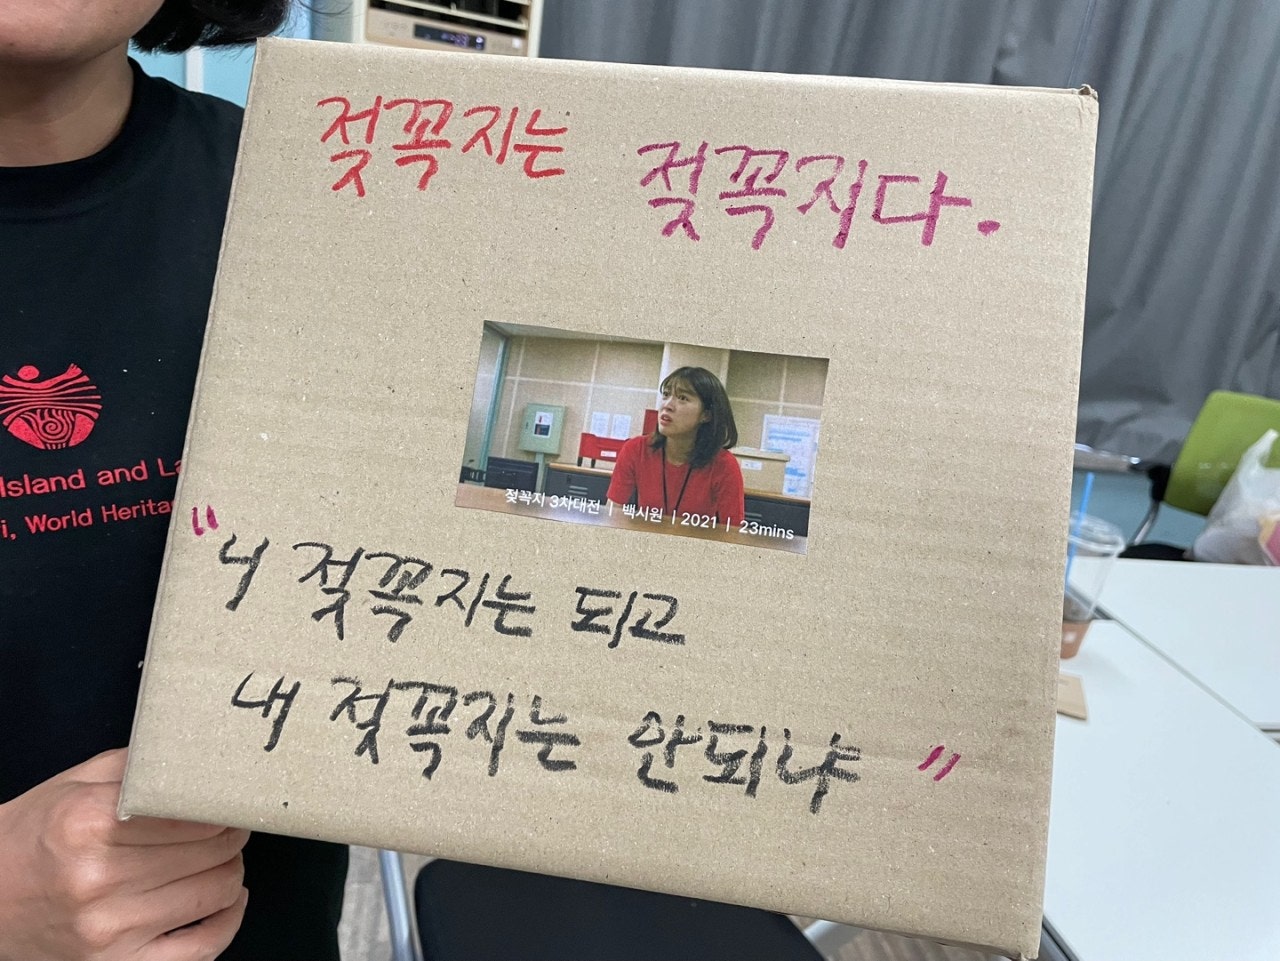 젖꼭지는 젖꼭지다.
젖꼭지 3차대전 | 백시원 | 2021 | 23mins
Island and
i, World Herita
"니 젖꼭지는 되고
내 젖꼭지는 안되냐"